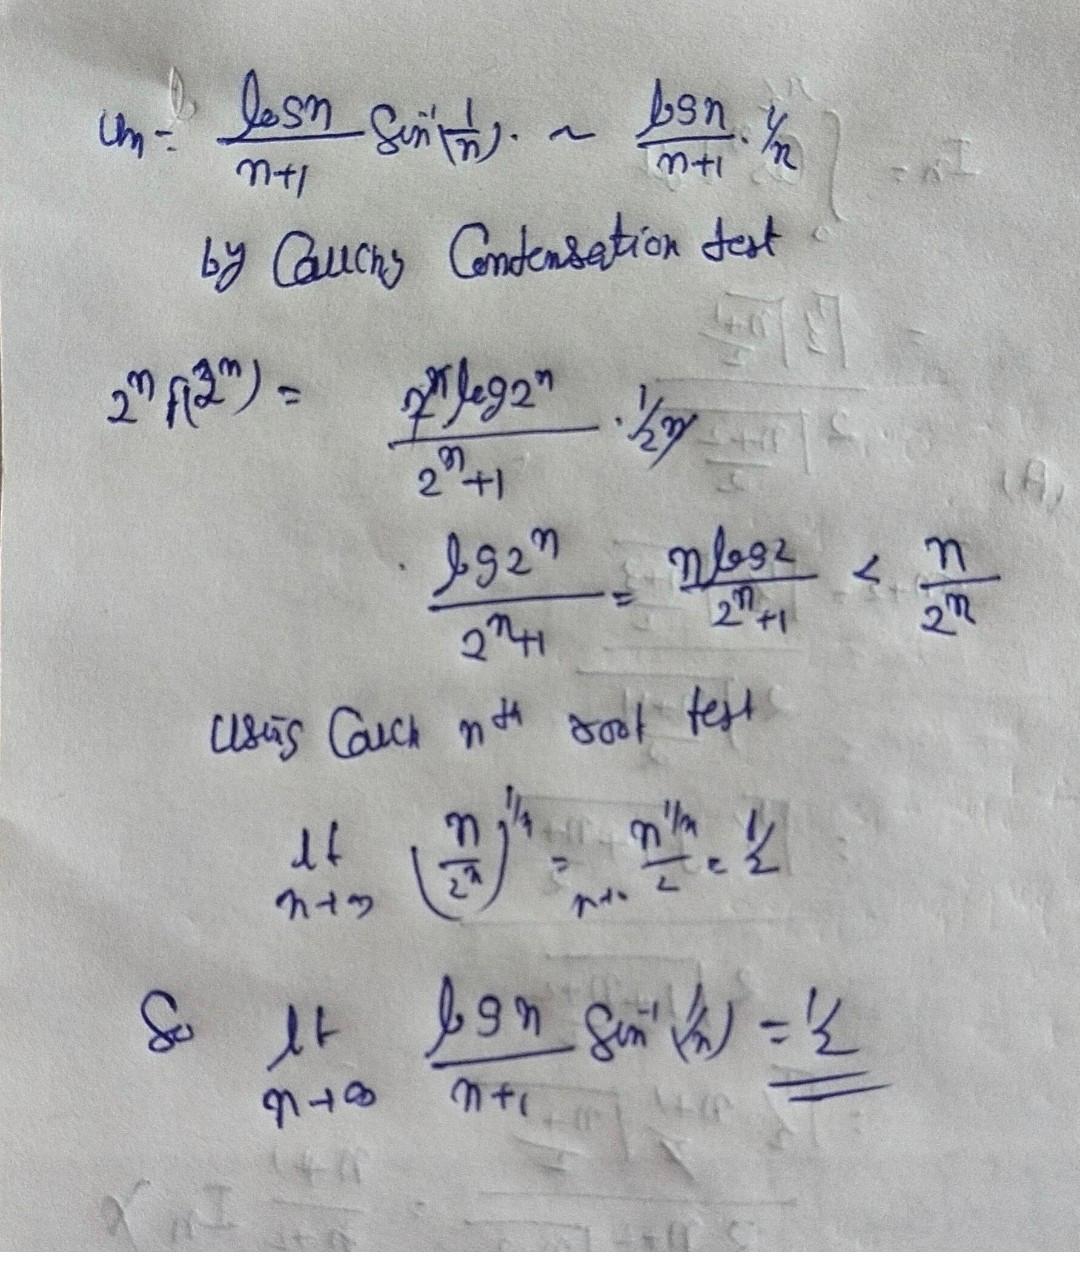 Un = logn/n+1 Sin⁻¹(1/n). ~ logn/n+1 . 1/n
by Cauchy Condensation test
2ⁿ f(2ⁿ) = 2ⁿ log2ⁿ/2ⁿ+1 . 1/2ⁿ
log2ⁿ/2ⁿ+1 = nlog2/2ⁿ+1 < n/2ⁿ
Using Cauch nth root test
lt n→∞ (n/2ⁿ)^1/n = n→∞ n^1/n/2 = 1/2
So lt n→∞ logn/n+1 Sin⁻¹(1/n) = 1/2